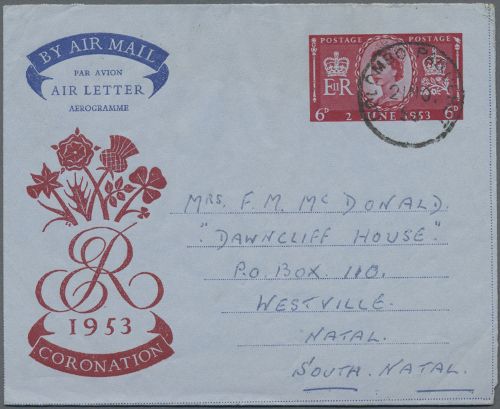 BY AIR MAIL
PAR AVION
AIR LETTER
AEROGRAMME
POSTAGE POSTAGE
E II R
6D 2 JUNE 1953 6D
MRS. F. M. MC DONALD.
"DAWNCLIFF HOUSE"
P.O. BOX. 110.
WESTVILLE.
NATAL.
SOUTH. NATAL.
ER
1953
CORONATION